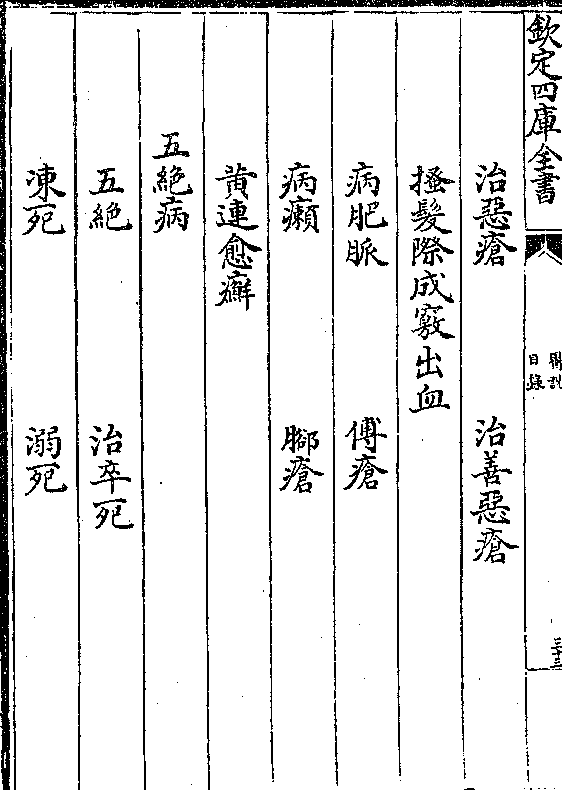 欽定四庫全書
醫說
目錄
三十三
治惡瘡　治善惡瘡
搔髮際成竅出血
病肥脈　傅瘡
病癩　腳瘡
黃連愈癬
五絶病
五絶　治卒死
凍死　溺死